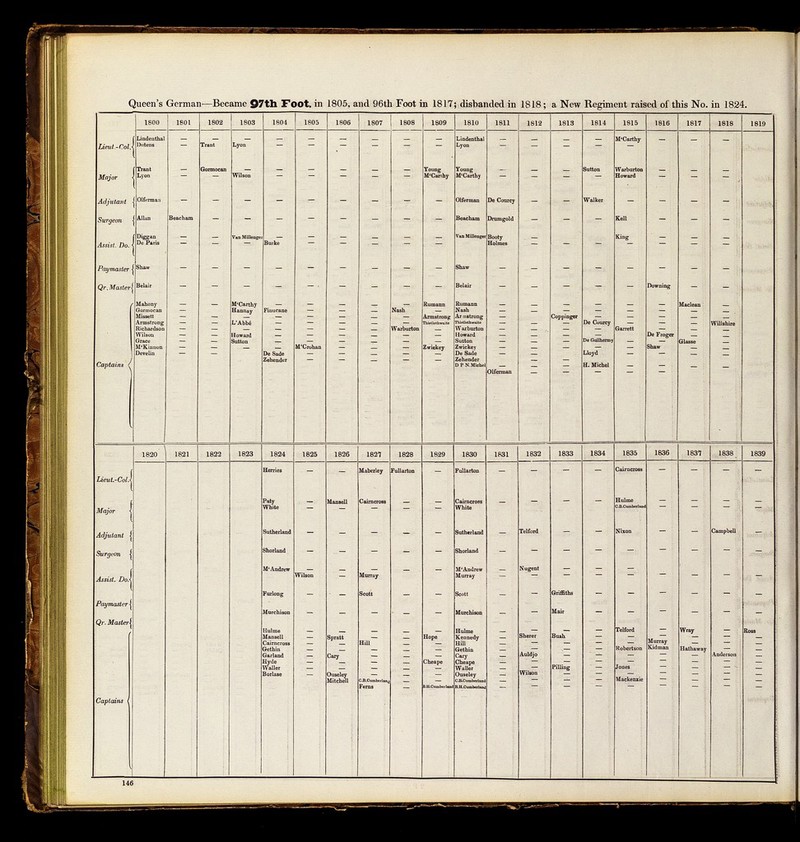 Queen's German—Became 97th Foot, in 1805, and 96th Foot in 1817; disbanded in 1818; a New Regiment raised of this No. in 1824.
1800 1801 1802 1803 1804 1805 1806 1807 1808 1809 1810 1811 1812 1813 1814 1815 1816 1817 1818 1819
Lieut.-Col. Lindenthal — — — — — — — — — Lindenthal — — — — M'Carthy — — —
Dotens — Trant Lyon — — — — — — Lyon — — — — —
Major Trant — Gormocan — — — — — — Young Young — — — Sutton Warburton — — —
Lyon — — Wilson — — — — — M'Carthy M'Carthy — — — — Howard — — —
Adjutant Olferman — — — — — — — — — Olferman De Courcy — — Walker — — — —
Surgeon Allan Beacham — — — — — — — — Beacham Drumgold — — — Kell — — —
Assist. Do. Diggan — — Van Millenger — — — — — — Van Millenger Booty — — — King — — —
De Paris — — — Burke — — — — — — Holmes — — — — — — —
Paymaster Shaw — — — — — — — — — Shaw — — — — — — — —
Qr. Master Belair — — — — — — — — — Belair — — — — — Downing — —
Captains Mahony — — M'Carthy — — — — — Rumann Rumann — — — — — — Maclean —
Gormocan — — Hannay Finucane — — — Nash — Nash — — — — — — — —
Missett — — — — — — — — Armstrong Armstrong — — Coppinger — — — — —
Armstrong — — L'Abbé — — — — — Thistlethwaite Thistlethwaite — — — De Courcy — — — Willshire
Richardson — — — — — — — Warburton — Warburton — — — — Garrett — — —
Wilson — — Howard — — — — — — Howard — — — — — De Finger — —
Grace — — Sutton — — — — — — Sutton — — — De Guilhermy — — Glasse —
M'Kinnon — — — — M'Crohan — — — Zwickey Zwickey — — — — — Shaw — —
Develin — — — De Sade — — — — — De Sade — — — Lloyd — — — —
Zehender — — — — — Zehender — — — — — — — —
D P N. Michel — — — H. Michel — — — —
Olferman — — — — — — —
1820 1821 1822 1823 1824 1825 1826 1827 1828 1829 1830 1831 1832 1833 1834 1835 1836 1837 1838 1839
Lieut.-Col. Herries — — Maberley Fullarton — Fullarton — — — — Cairncross — — — —
Major Paty — Mansell Cairncross — — Cairncross — — — — Hulme — — — —
White — — — — — White — — — — C.B.Cumberland — — — —
Adjutant Sutherland — — — — — Sutherland — Telford — — Nixon — — Campbell —
Surgeon Shorland — — — — — Shorland — — — — — — — — —
Assist. Do. M'Andrew — — — — — M'Andrew — Nugent — — — — — — —
Wilson — Murray — — Murray — — — — — — — — —
Paymaster Furlong — — Scott — — Scott — — Griffiths — — — — — —
Qr. Master Murchison — — — — — Murchison — — Mair — — — — — —
Captains Hulme — — — — — Hulme — — — — Telford — Wray — Ross
Mansell — Spratt — — Hope Kennedy — Sherer Bush — — — — — —
Cairncross — — Hill — — Hill — — — — — Murray — — —
Gothin — — — — — Gothin — — — — Robertson Kidman Hathaway — —
Garland — Cary — — — Cary — Auldjo — — — — — Anderson —
Hyde — — — — Cheape Cheape — — — — — — — — —
Waller — — — — — Waller — — Pilling — Jones — — — —
Borlase — Ouseley — — — Ouseley — Wilson — — — — — — —
Mitchell C.B.Cumberland — — C.B.Cumberland — — — — Mackenzie — — — —
Ferns — B.H.Cumberland B.H.Cumberland — — — — — — — — —
146